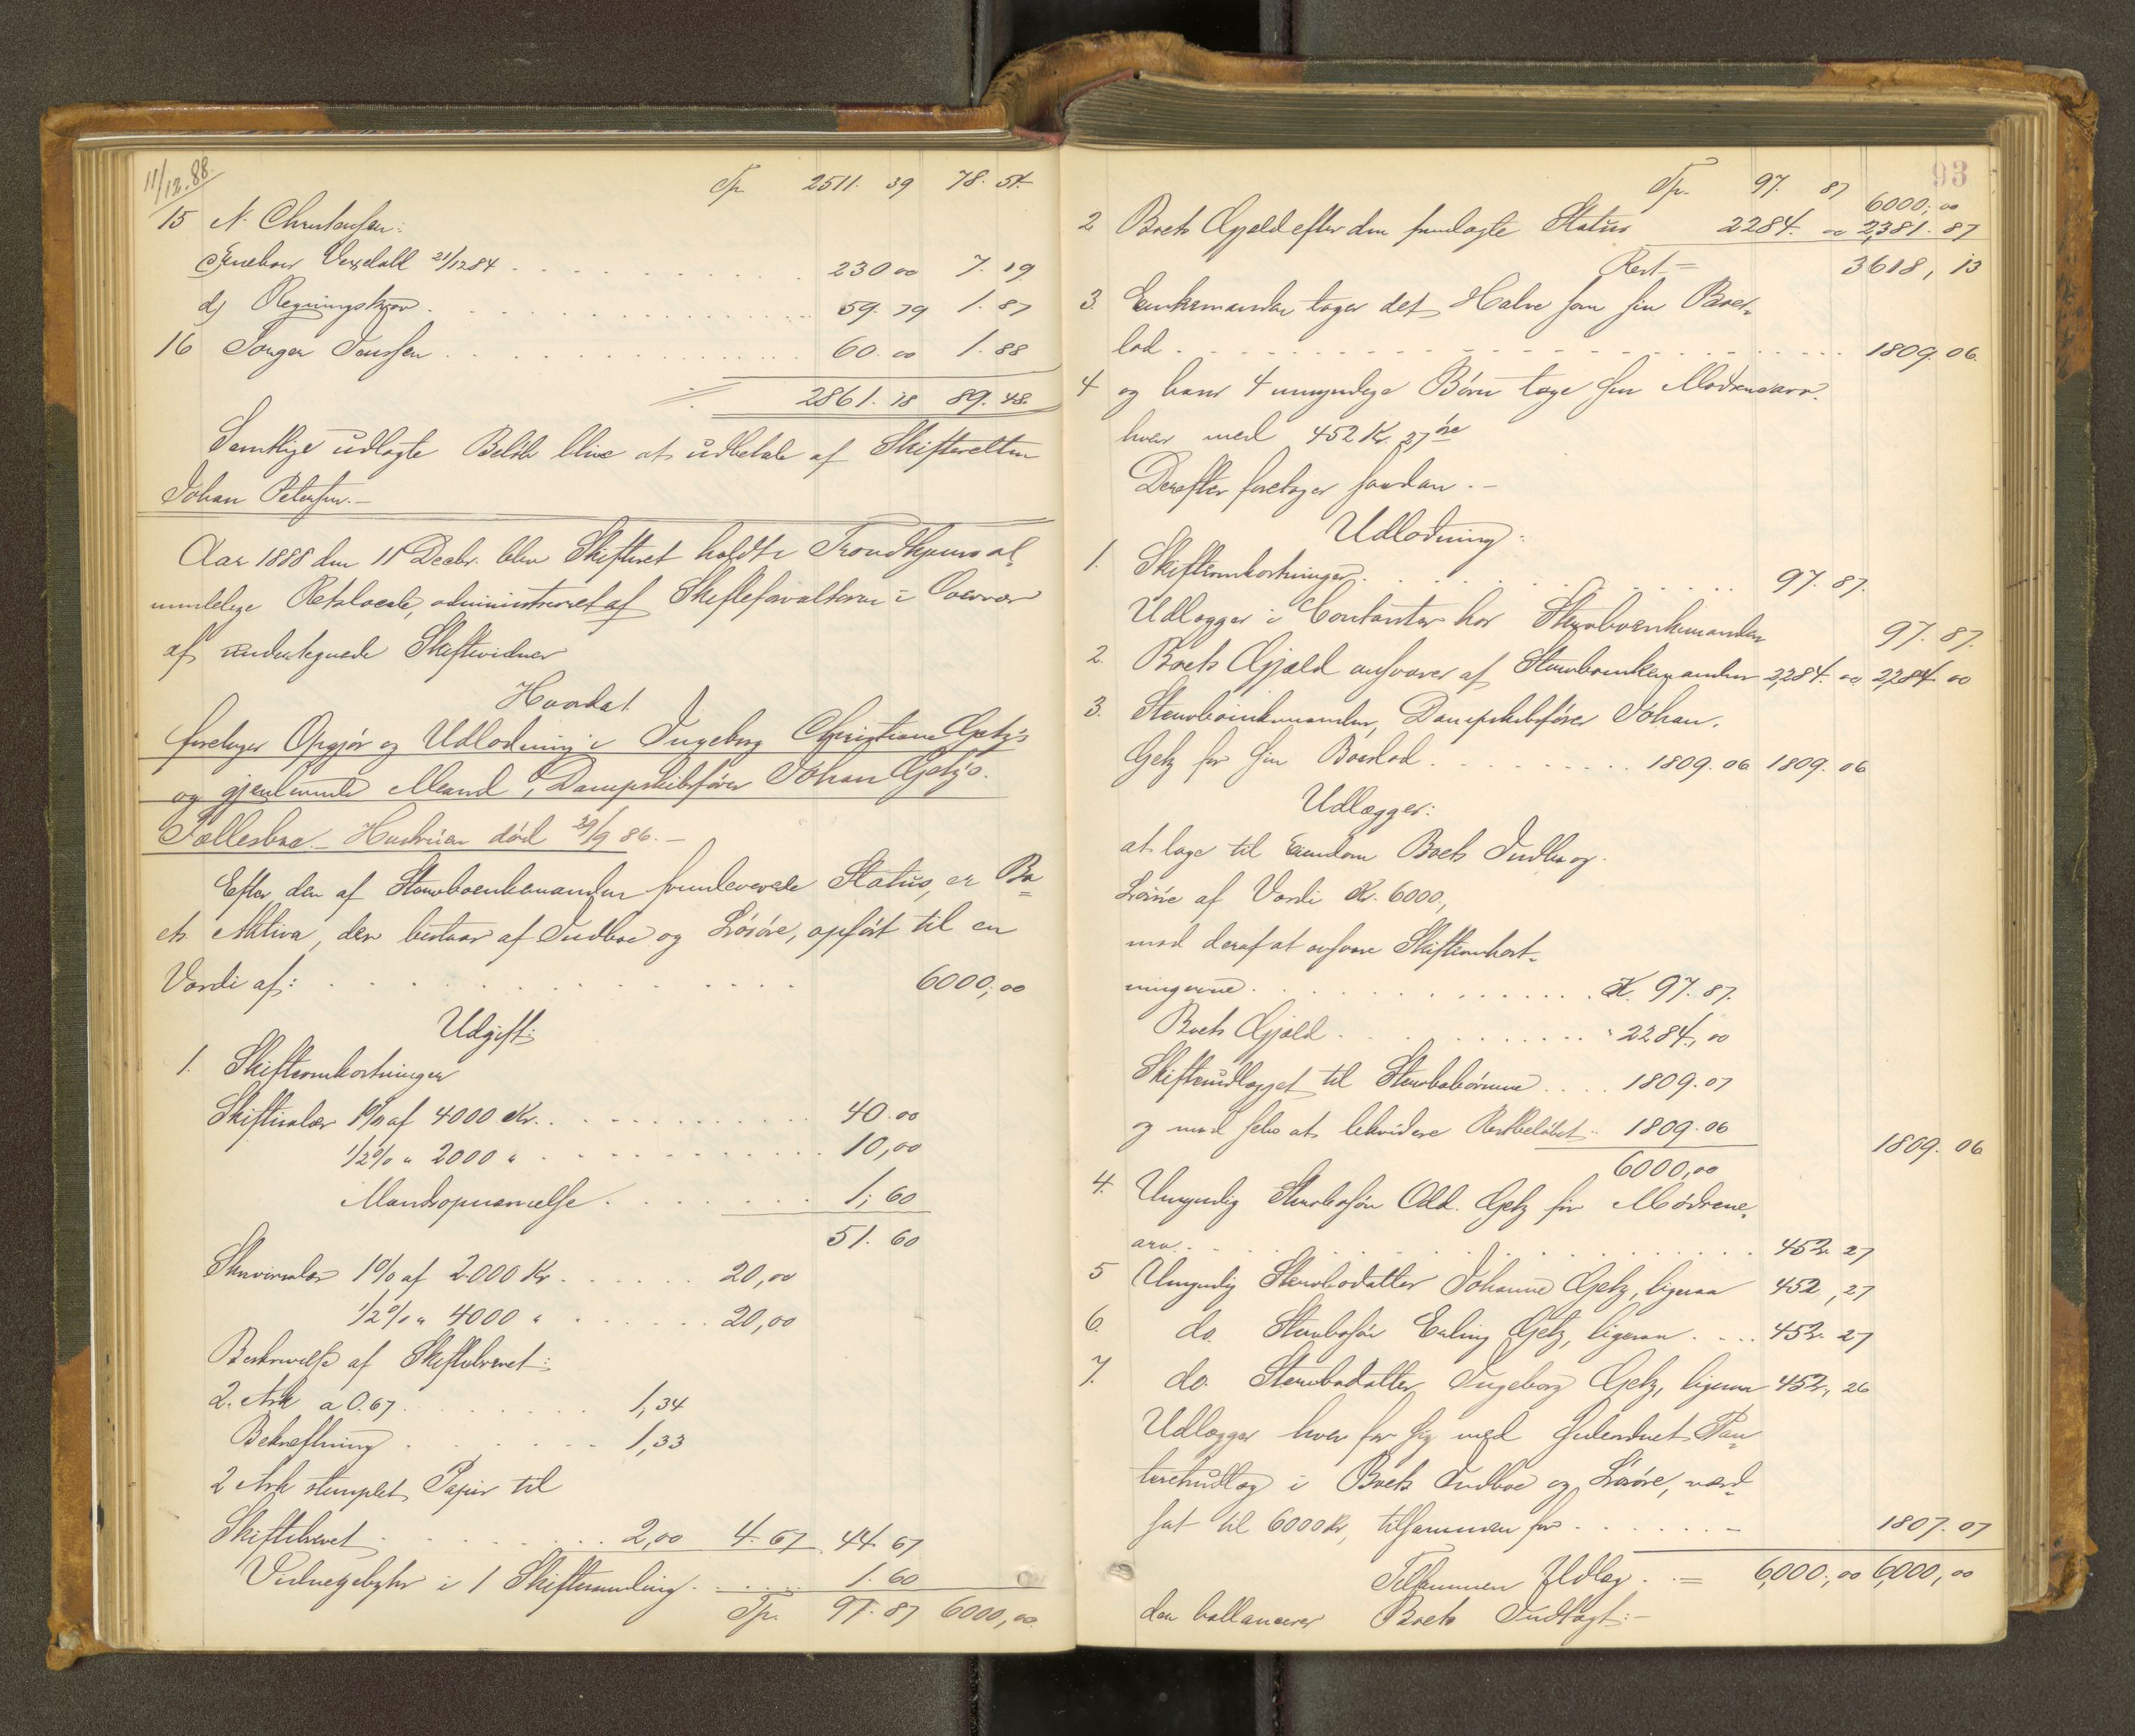 11/12.88.
Tp. 2511. 39 78. 54.
15 N. Christensen:
c) Vexelobl 21/12 84 . . . 230 00 7. 19
d) Regningskrav . . . 59. 79 1. 87
16 Jørgen Jenssen . . . 60. 00 1. 88
2861. 18 89. 48.
Samtlige udlagte Beløb blive at udbetale af Skifteretten
Johan Petersen.-
Aar 1888 den 11 Decbr. blev Skifteret holdt i Trondhjems al-
mindelige Retslocale, administreret af Skifteforvalteren i Overvær
af undertegnede Skiftevidner
Hvorda!
foretages Opgjør og Udlodning i Ingeborg Christiane Getz's
og gjenlevende Mand, Dampskibsfører Johan Getz's.
Fællesboe.- Hustruen død 29/9 86.-
Efter den af Stervboenkemanden fremleverede Status, er Bo-
ets Aktiva, der bestaar af Indboe og Løsøre, opført til en
Værdi af: . . . 6000,00
Udgift:
1. Skifteomkostninger
Skiftesalær 1% af 4000 Kr. . . . 40.00
1/2% " 2000 " . . . 10,00
Mandsopnævnelse . . . 1,60
51. 60
Skriversalær 1% af 2000 Kr . . . 20,00
1/2% " 4000 " . . . 20,00
Beskrivelse af Skiftebrevet:
2. Ark a 0.67 . . . 1,34
Bekræftning . . . 1,33
2 Ark stemplet Papir til
Skiftebrevet . . . 2,00 4. 67 44. 67
Vidnegebyhr i 1 Skiftesamling . . . 1. 60
Tp. 97. 87 6000,00.
93
Tp. 97. 87 6000,00
2 Boets Gjæld efter den fremlagte Status 2284. 00 2,381. 87
Rest = 3618, 13
3. Enkemanden tager det Halve som sin Boes-
lod . . . 1809. 06.
4 og hans 4 umyndige Børn tage sin Mødrenearv.
hver med 452 Kr. 27 øre
Derefter foretages saadan.-
Udlodning:
1. Skifteomkostninger . . . 97. 87.
Udlægges i Contanter hos Stervboenkemanden 97. 87.
2. Boets Gjæld ansvares af Stervboenkemanden 2,284. 00 2,284 00
3. Stervboenkemanden, Dampskibsfører Johan.
Getz for sin Boeslod . . . 1809. 06 1809. 06
Udlægges:
at tage til Eiendom Boets Indbo og
Løsøre af Værdi Kr. 6000,
mod deraf at ansvare Skifteomkost-
ningerne . . . K. 97. 87.
Boets Gjæld . . . " 2284,00
Skifteudlægget til Stervbobørnene . . . 1809. 07
og mod selv at likvidere Restbeløbet . . 1809. 06
1809. 06
6000,00
4. Umyndig Stervbosøn Odd. Getz for Mødrene-
arv . . . 452. 27
5 Umyndig Stervbodatter Johanne Getz, ligesaa 452, 27
6. do. Stervbosøn Erling Getz, ligesaa . . . 452. 27
7. do. Stervbodatter Ingeborg Getz, ligesaa 452, 26
Udlægges hver for sig med sideordnet Pan-
teretsudlæg i Boets Indboe og Løsøre, værd-
sat til 6000 Kr, tilsammen for . . . 1807. 07
Tilsammen Udlæg . . = 6,000,00 6,000,00
der ballancerer Boets Indtægt:-